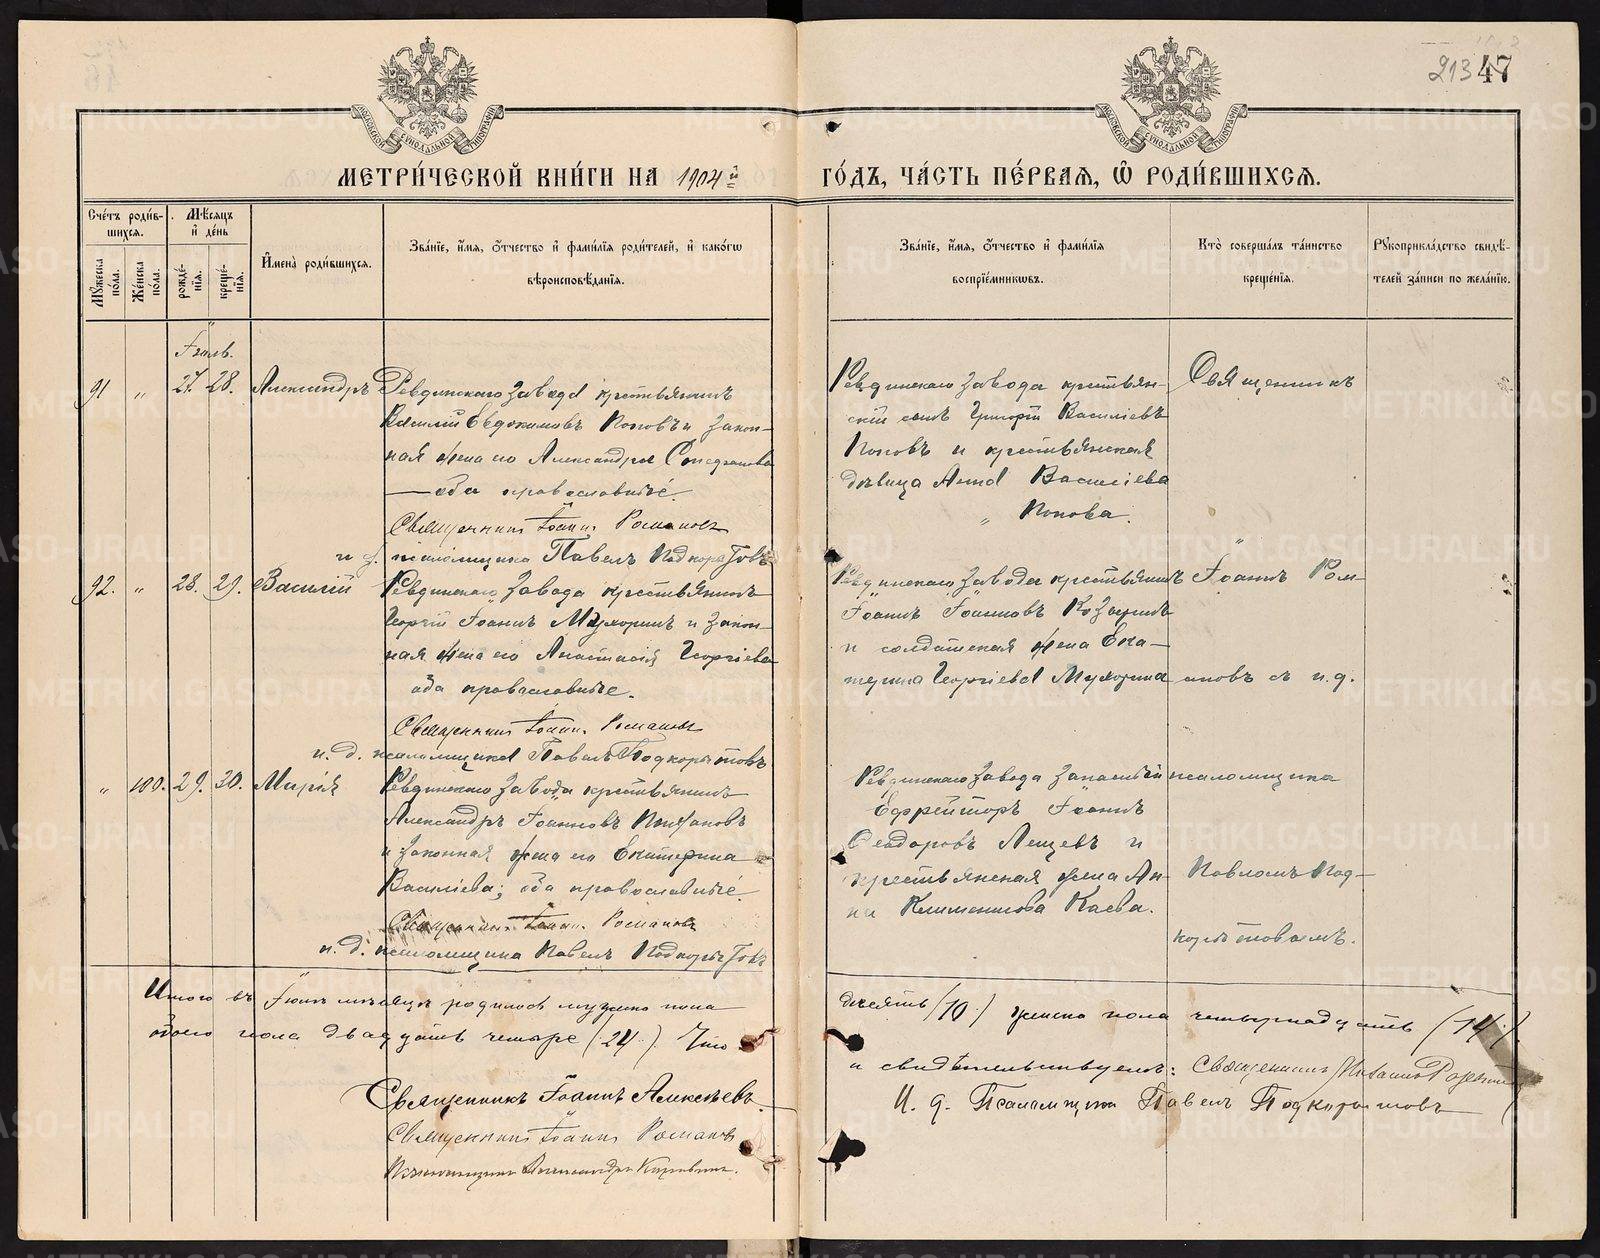 213 47
МЕТРИ́ЧЕСКОЙ КНИ́ГИ НА 1904 й ГО́ДЪ, ЧА́СТЬ ПЕ́РВАѦ, Ѡ҆ РОДИ́ВШИХСѦ.
Сче́тъ роди́вшихсѧ.
Мꙋ́жеска по́ла.
Же́нска по́ла.
Мѣ́сѧцъ и҆ де́нь
рожде́нїѧ.
креще́нїѧ.
И҆мена̀ роди́вшихсѧ.
Зва́нїе, и҆́мѧ, ѻ҆́тчество и҆ фами́лїѧ роди́телей, и҆ како́гѡ
вѣроисповѣ́данїѧ.
Зва́нїе, и҆́мѧ, ѻ҆́тчество и҆ фами́лїѧ
воспрїе́мникѡвъ.
Кто̀ соверша́лъ та́инство
креще́нїѧ.
Рꙋкоприкла́дство свидѣ́-
телей за́писи по жела́нїю.
91 " 27. 28. Александръ
Ревдинскаго завода крестьянинъ
Василій Евдокимовъ Поповъ и закон-
ная жена его Александра Стефанова
оба православные.
Священникъ Іоаннъ Романовъ
и д. псаломщика Павелъ Подкорытовъ
Ревдинскаго завода крестьян-
скій сынъ Григорій Васильевъ
Поповъ и крестьянская
дѣвица Анна Васильева
" Попова.
Священникъ
92. " 28. 29. Василій
Ревдинскаго завода крестьянинъ
Георгій Іоанновъ Мухоринъ и закон-
ная жена его Анастасія Георгіева
оба православные.
Священникъ Іоаннъ Романовъ
и. д. псаломщика Павелъ Подкорытовъ
Ревдинскаго завода крестьянинъ
Іоаннъ Іоанновъ
и солдатская жена Ека-
терина Георгіева Мухорина
Іоаннъ Ром-
ановъ съ и. д.
" 100. 29. 30. Марія
Ревдинскаго завода крестьянинъ
Александръ Іоанновъ
и законная жена его Екатерина
Васильева; оба православные.
Священникъ Іоаннъ Романовъ
и. д. псаломщика Павелъ Подкорытовъ
Ревдинскаго завода запасный
Ефрейторъ Іоаннъ
Ѳеодоровъ Лещевъ и
крестьянская жена Ан-
на Климентова Каева.
псаломщика
Павломъ Под-
корытовымъ.
Итого въ Іюнѣ мѣсяцѣ родилось мужеска пола десять (10) женска пола четырнадцать (14).
обоего пола двадцать четыре (24). Что и свидѣтельствуемъ: Священникъ
Священникъ Іоаннъ Алексѣевъ
И. д. Псаломщика Павелъ Подкорытовъ
Священникъ Іоаннъ Романовъ
Псаломщикъ Александръ
METRIKI.GASO-URAL.RU